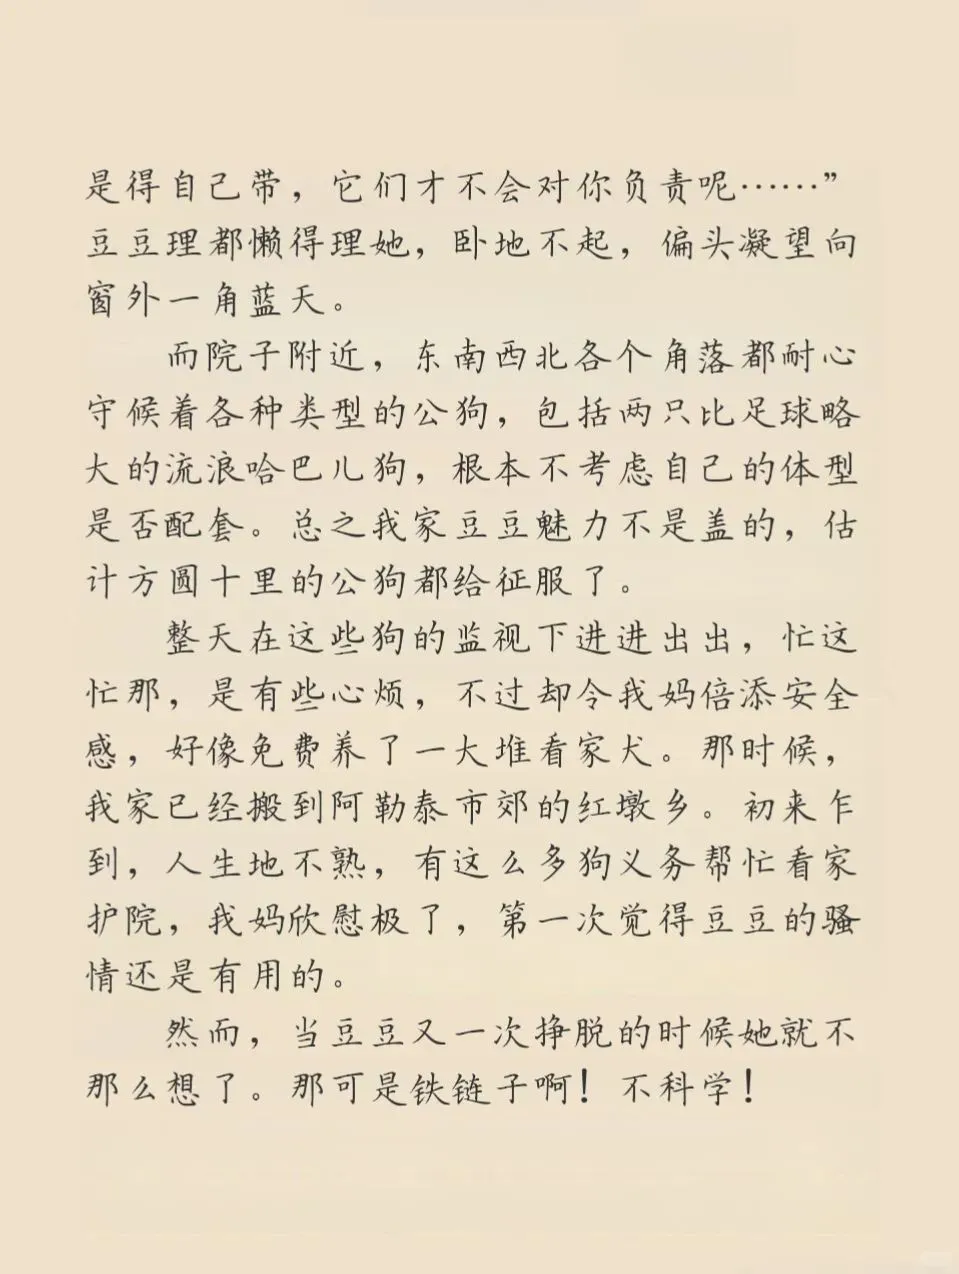 是得自己带，它们才不会对你负责呢……”
豆豆理都懒得理她，卧地不起，偏头凝望向
窗外一角蓝天。
而院子附近，东南西北各个角落都耐心
守候着各种类型的公狗，包括两只比足球略
大的流浪哈巴儿狗，根本不考虑自己的体型
是否配套。总之我家豆豆魅力不是盖的，估
计方圆十里的公狗都给征服了。
整天在这些狗的监视下进进出出，忙这
忙那，是有些心烦，不过却令我妈倍添安全
感，好像免费养了一大堆看家犬。那时候，
我家已经搬到阿勒泰市郊的红墩乡。初来乍
到，人生地不熟，有这么多狗义务帮忙看家
护院，我妈欣慰极了，第一次觉得豆豆的骚
情还是有用的。
然而，当豆豆又一次挣脱的时候她就不
那么想了。那可是铁链子啊！不科学！